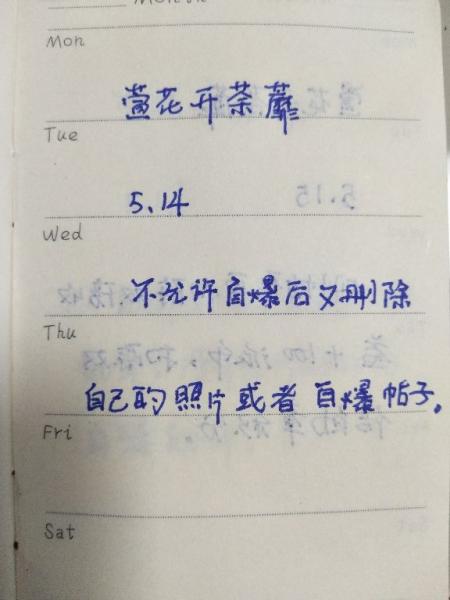 Month
Mon
萱花开荼蘼
Tue
5.14
Wed
不允许自爆后又删除
Thu
自己的照片或者自爆帖子。
Fri
Sat